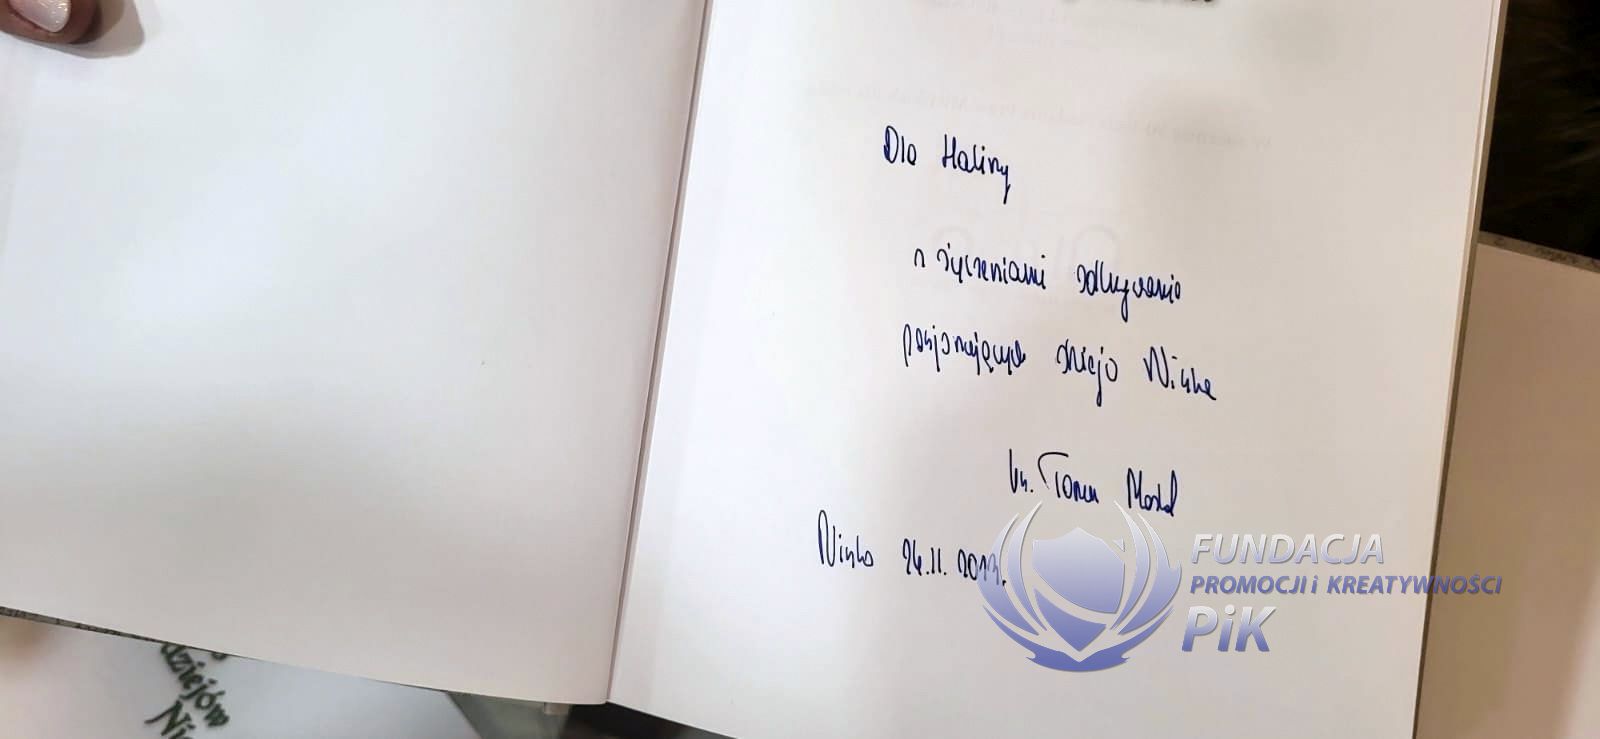 Dla Haliny
z życzeniami odkrywania
pasjonujących dziejów Niska
ks. Tomasz
Nisko 24.11.
FUNDACJA
PROMOCJI i KREATYWNOŚCI
PiK
dziejów